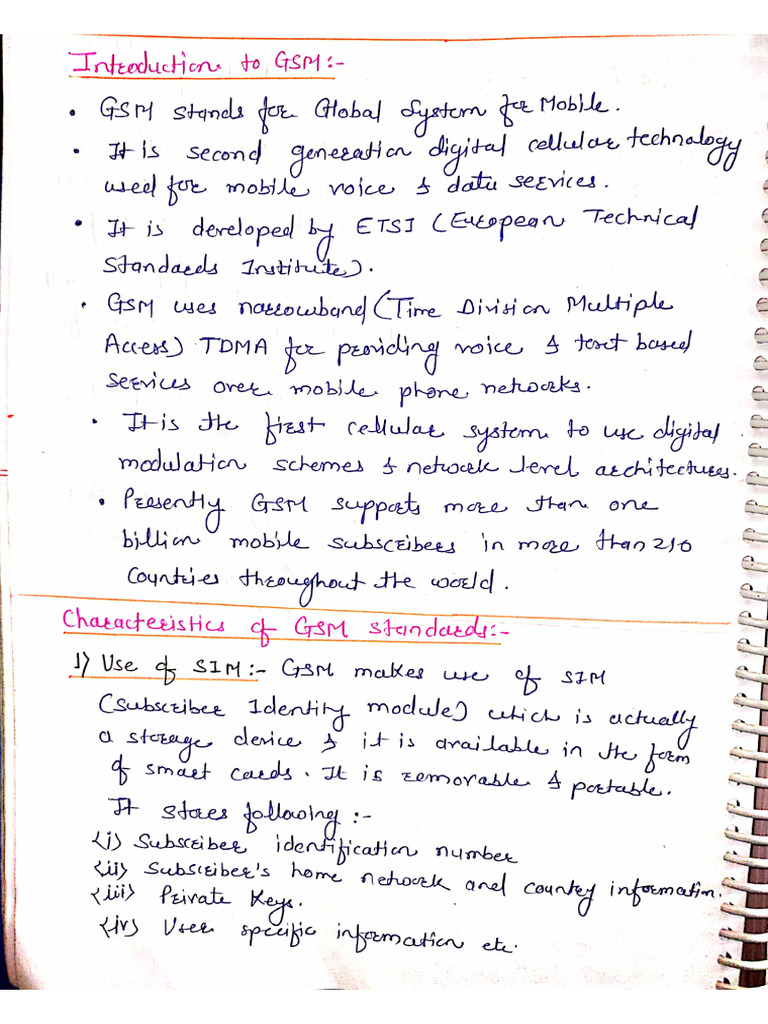 Introduction to GSM:-
• GSM stands for Global System for Mobile.
• It is second generation digital cellular technology
used for mobile voice & data services.
• It is developed by ETSI (European Technical
Standards Institute).
• GSM uses narrowband (Time Division Multiple
Access) TDMA for providing voice & text based
services over mobile phone networks.
• It is the first cellular system to use digital
modulation schemes & network level architectures.
• Presently GSM supports more than one
billion mobile subscribers in more than 210
Countries throughout the world.
Characteristics of GSM Standards:-
1) Use of SIM:- GSM makes use of SIM
(Subscriber Identity module) which is actually
a storage device & it is available in the form
of smart cards. It is removable & portable.
It stores following :-
(i) Subscriber identification number
(ii) Subscriber's home network and country information.
(iii) Private Keys.
(iv) User specific information etc.